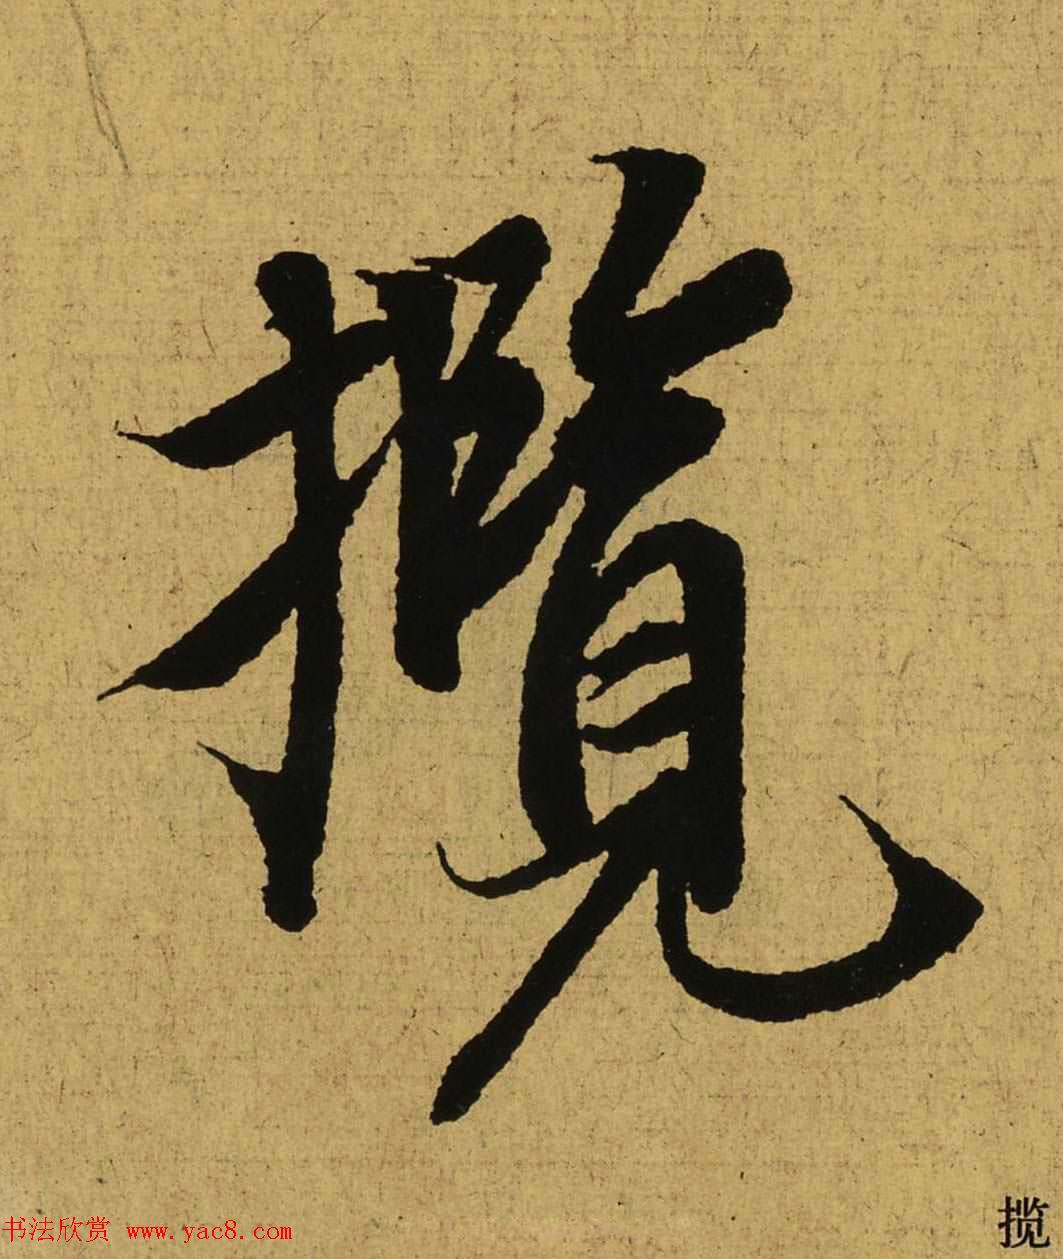 攬
书法欣赏 www.yac8.com
揽